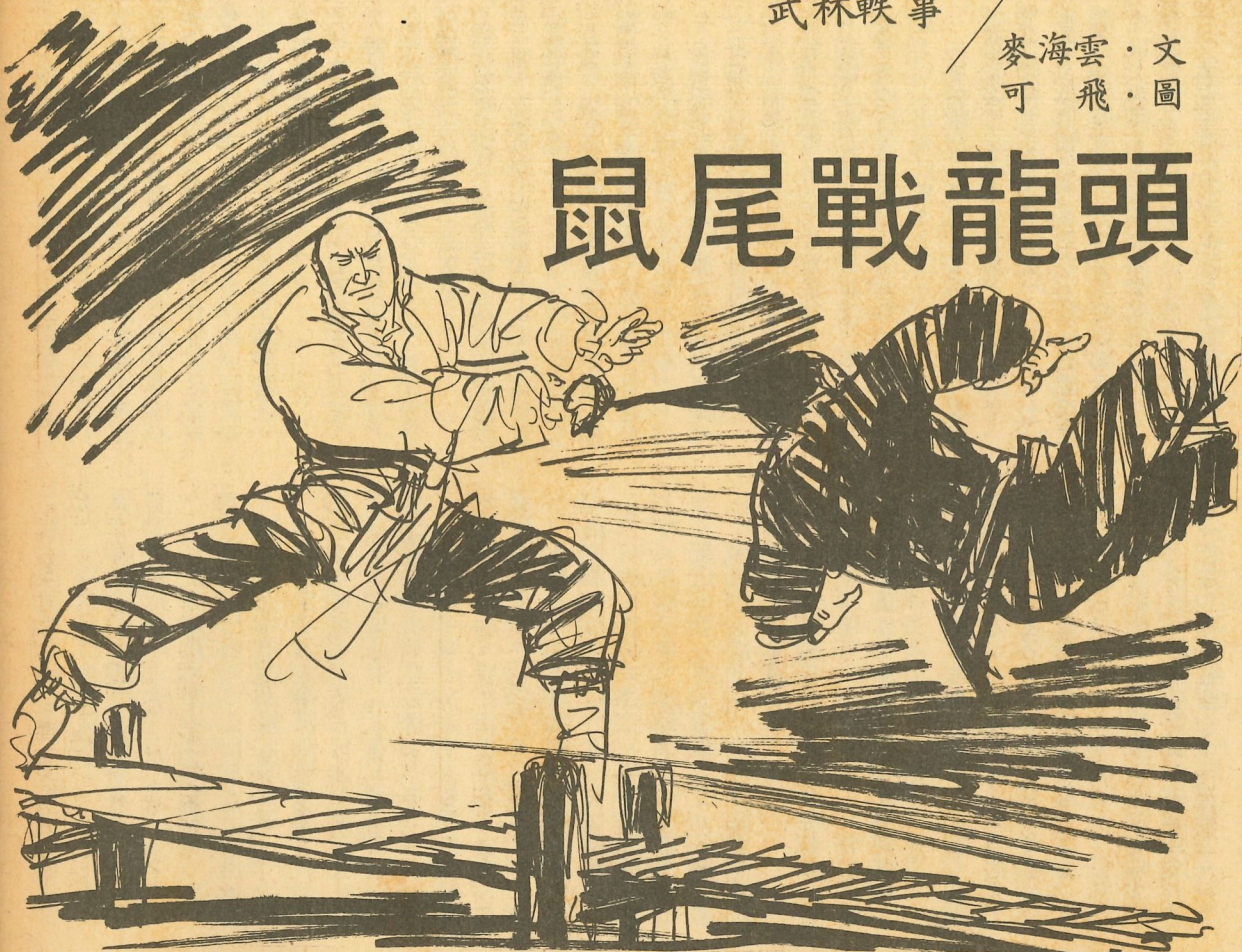 武林軼事
麥海雲·文
可飛·圖
鼠尾戰龍頭